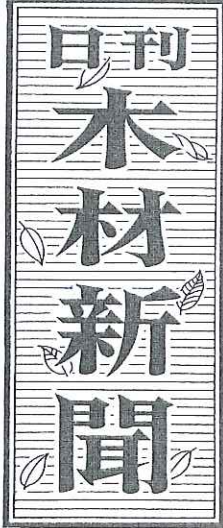 日刊
木材新聞